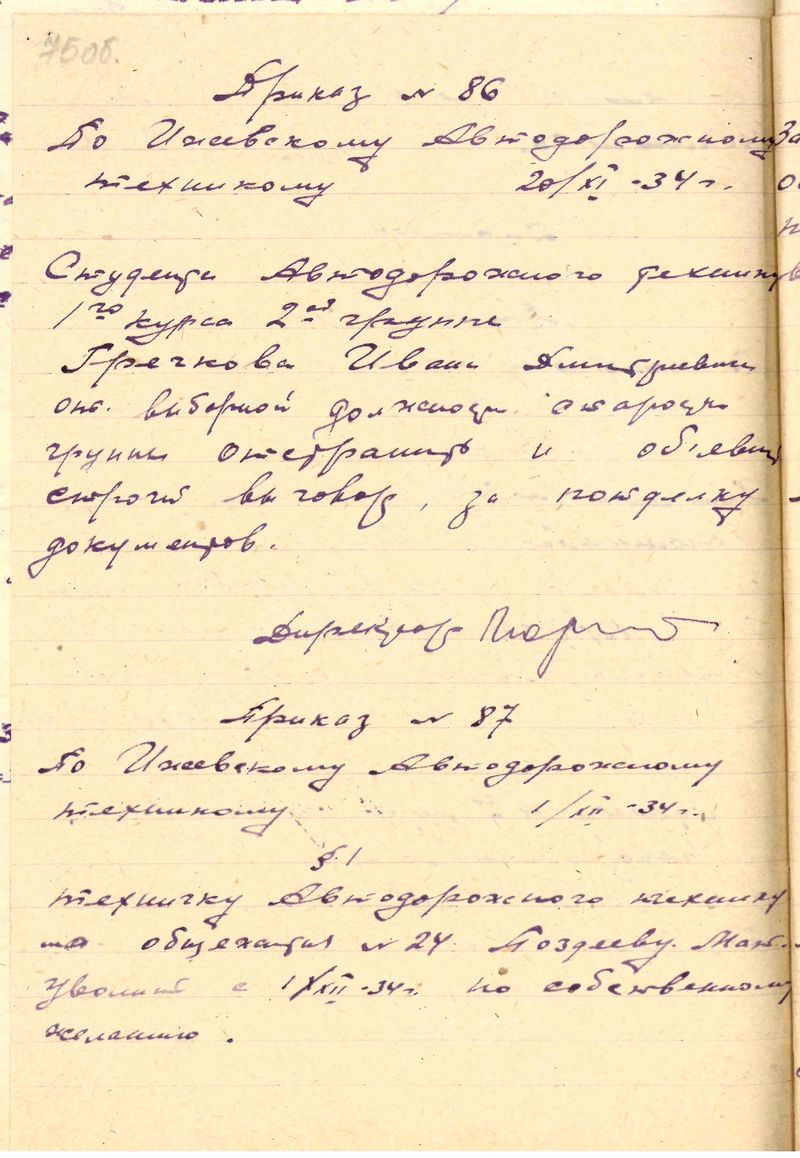 75об.
Приказ № 86
По Ижевскому Автодорожному
техникому 20/XI -34 г.
Студента Автодорожного технику
1го курса 2ой группы
Гречкова Ивана Дмитриевич
от выборной должности старосты
группы отстранить и об'явить
строгий выговор, за потделку
документов.
Директор
Приказ № 87
По Ижевскому Автодорожному
техникому 1/XII -34 г.
§ 1
техничку Автодорожного технику
ма общежития № 24 Поздееву Мат.
Уволит с 1/XII -34 г. по собственному
желанию.